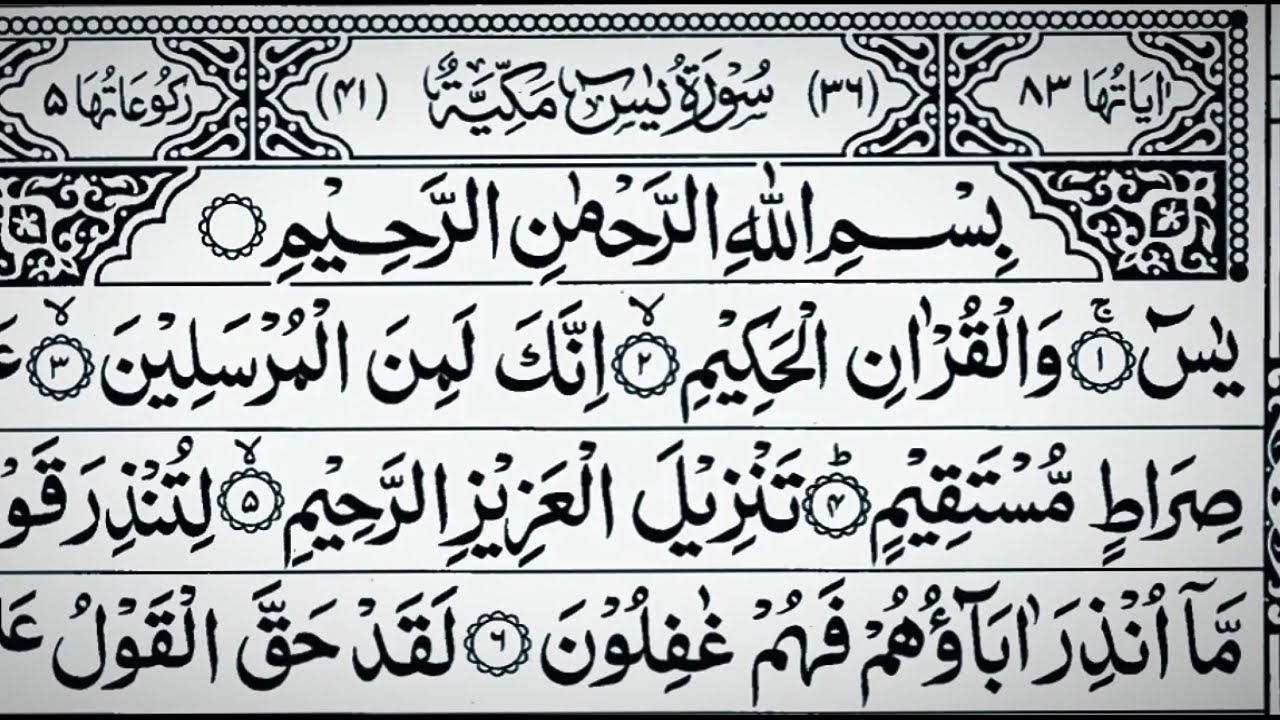 اٰیَاتُهَا ۸۳ (۳۶) سُوْرَةُ یٰسٓ مَکِّیَّةٌ (۴۱) رُکُوْعَاتُهَا ۵
بِسْمِ اللّٰهِ الرَّحْمٰنِ الرَّحِیْمِ
یٰسٓ ۚ‏﴿۱﴾ وَالْقُرْاٰنِ الْحَکِیْمِ ۙ‏﴿۲﴾ اِنَّكَ لَمِنَ الْمُرْسَلِیْنَ ۙ‏﴿۳﴾ عَ
صِرَاطٍ مُّسْتَقِیْمٍ ؕ‏﴿۴﴾ تَنْزِیْلَ الْعَزِیْزِ الرَّحِیْمِ ۙ‏﴿۵﴾ لِتُنْذِرَ قَوْ
مَّاۤ اُنْذِرَ اٰبَآؤُهُمْ فَهُمْ غٰفِلُوْنَ ﴿۶﴾ لَقَدْ حَقَّ الْقَوْلُ عَل